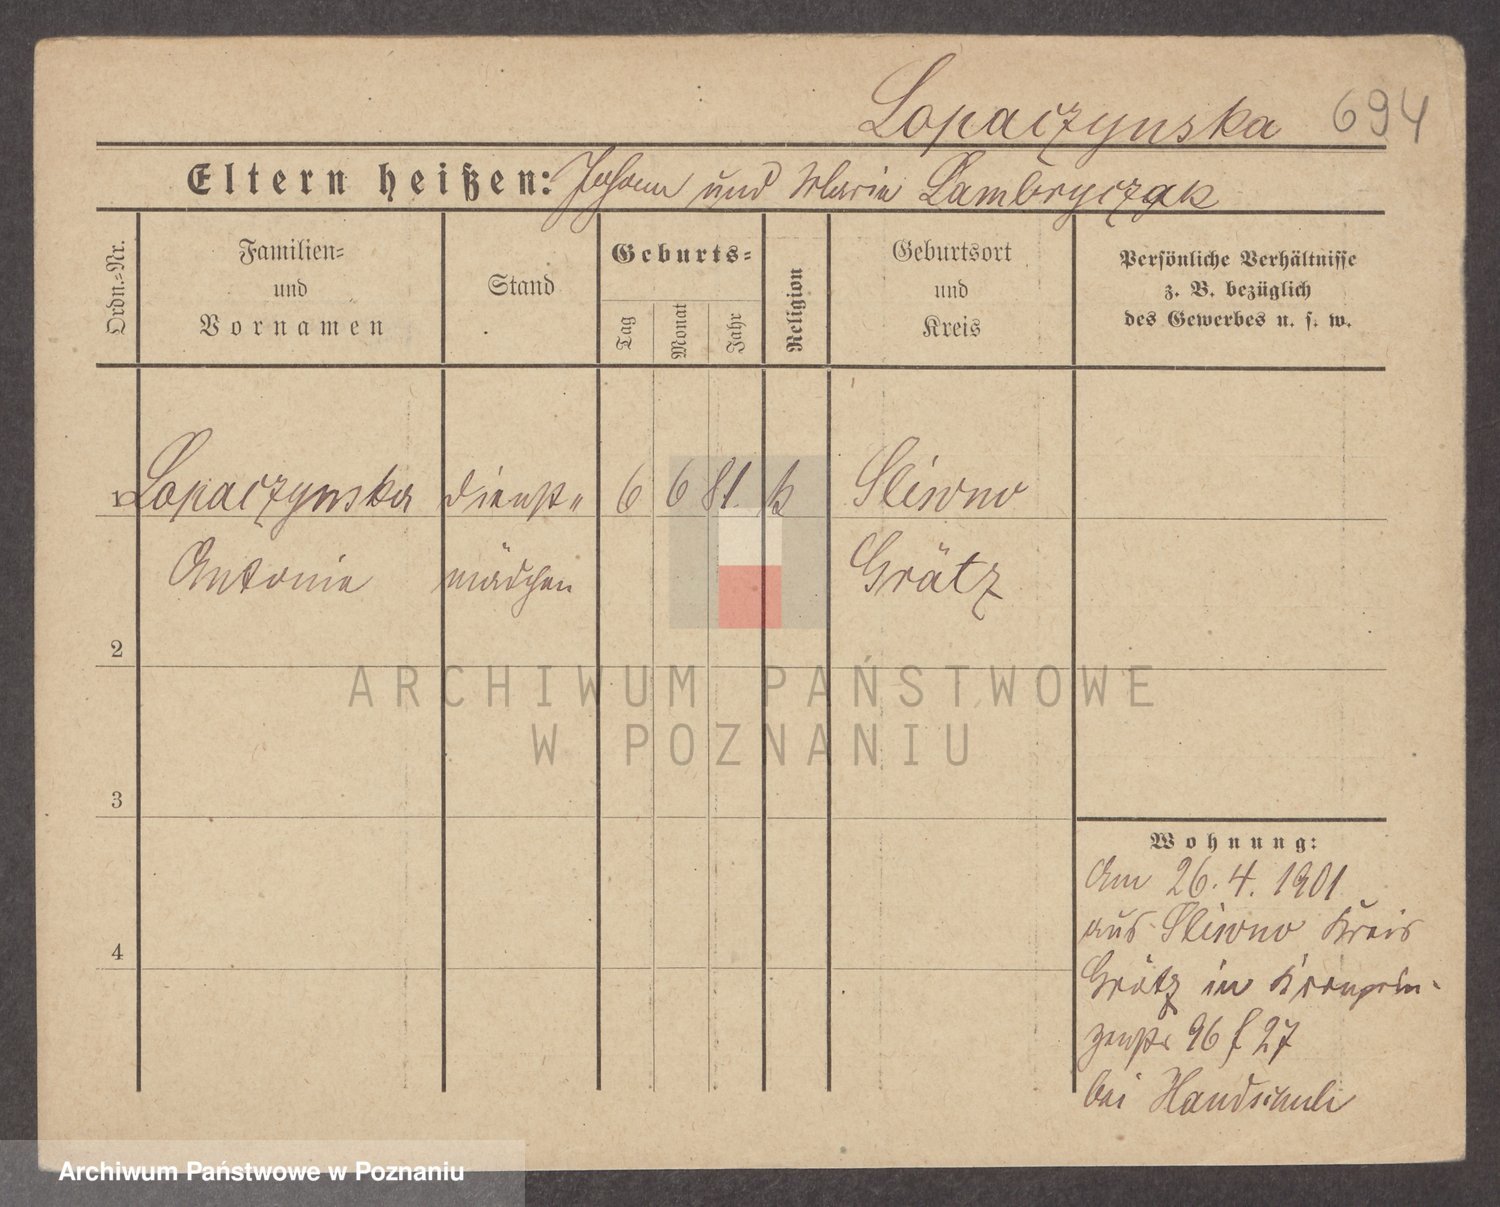 Lopaczynska 694
Eltern heißen: Johann und Maria Lambryczak
Ordn.-Nr.
Familien-
und
Vornamen
Stand
Geburts-
Tag
Monat
Jahr
Religion
Geburtsort
und
Kreis
Persönliche Verhältnisse
z. B. bezüglich
des Gewerbes u. s. w.
1 Lopaczynska Dienst- 6 6 81. k Sliwno
Antonie mädchen Grätz
2
3
4
Wohnung:
Am 26. 4. 1901
aus Sliwno Kreis
Grätz in Kronprin-
zenstr 96 f 27
bei Handschuh
ARCHIWUM PAŃSTWOWE
W POZNANIU
Archiwum Państwowe w Poznaniu